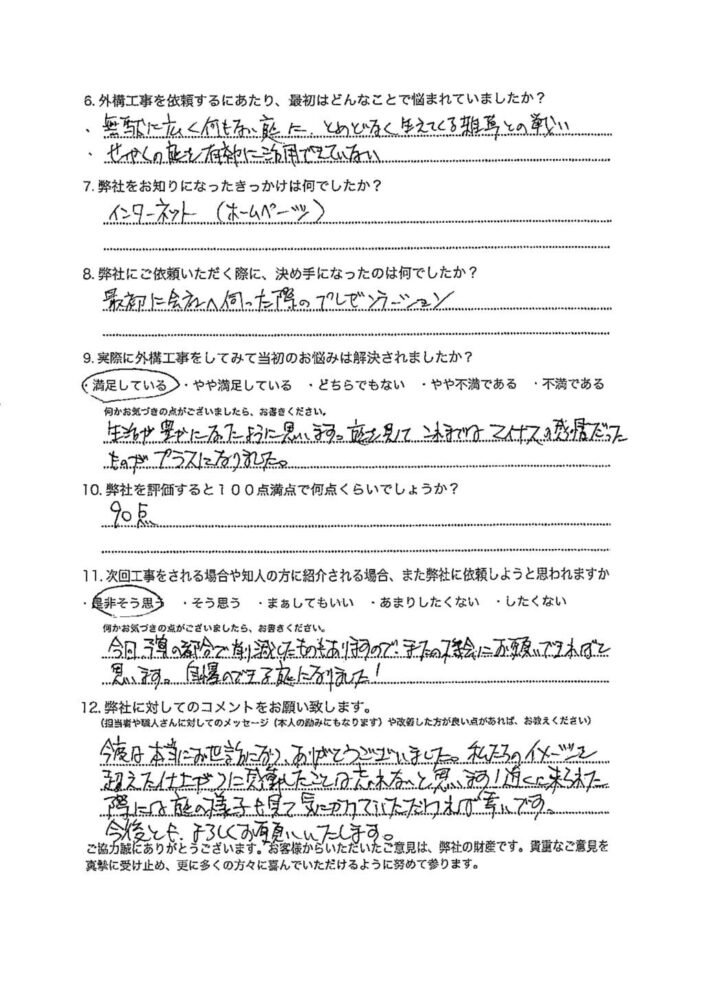 6. 外構工事を依頼するにあたり、最初はどんなことで悩まれていましたか？
・無駄に広く何もない庭に、とめどなく生えてくる雑草との戦い
・せっかくの庭を有効に活用できていない
7. 弊社をお知りになったきっかけは何でしたか？
インターネット（ホームページ）
8. 弊社にご依頼いただく際に、決め手になったのは何でしたか？
最初に会社へ伺った際のプレゼンテーション
9. 実際に外構工事をしてみて当初のお悩みは解決されましたか？
・満足している ・やや満足している ・どちらでもない ・やや不満である ・不満である
何かお気づきの点がございましたら、お書きください。
生活が豊かになったように思います。庭を見て これまでは マイナスの感情だった
ものが プラスになりました。
10. 弊社を評価すると１００点満点で何点くらいでしょうか？
90点
11. 次回工事をされる場合や知人の方に紹介される場合、また弊社に依頼しようと思われますか
・是非そう思う ・そう思う ・まぁしてもいい ・あまりしたくない ・したくない
何かお気づきの点がございましたら、お書きください。
今回 予算の部分で削減したものもありますので、またの機会にお願いできればと
思います。自慢のできる庭になりました！
12. 弊社に対してのコメントをお願い致します。
（担当者や職人さんに対してのメッセージ（本人の励みにもなります）や改善した方が良い点があれば、お教えください）
今度は本当にお世話になり、ありがとうございました。私たちのイメージを
超えた仕上がりに感動したことは忘れないと思います！近くに来られた
際には庭の様子も見て気にかけていただければ幸いです。
今後とも、よろしくお願いいたします。
ご協力誠にありがとうございます。お客様からいただいたご意見は、弊社の財産です。貴重なご意見を
真摯に受け止め、更に多くの方々に喜んでいただけるように努めて参ります。